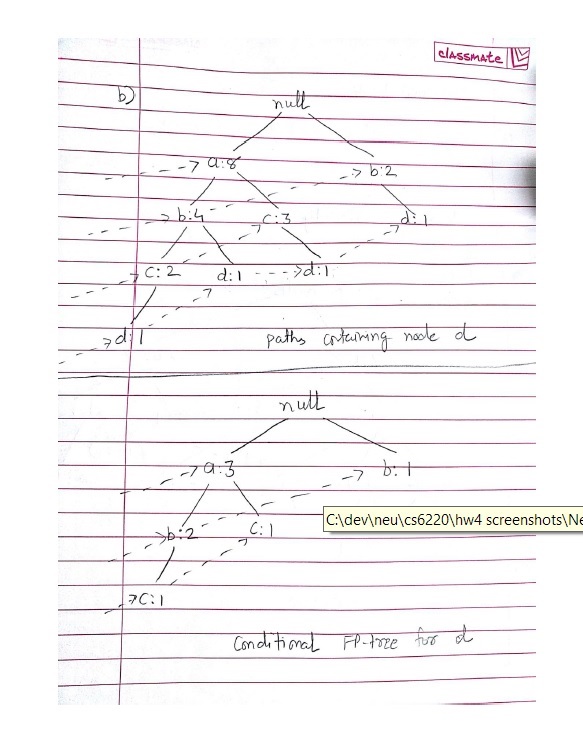 classmate
b)
null
a:8
b:2
b:4
c:3
d:1
c:2
d:1
d:1
d:1
paths containing node d
null
a:3
b:1
C:\dev\neu\cs6220\hw4 screenshots\Ne
b:2
c:1
c:1
Conditional FP-tree for d